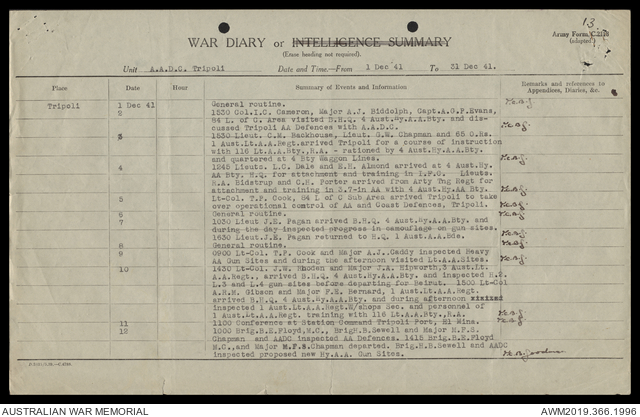 13
Army Form C.2118
(adapted)
WAR DIARY or INTELLIGENCE SUMMARY
(Erase heading not required).
Unit A.A.D.C. Tripoli Date and Time.—From 1 Dec '41 To 31 Dec 41.
Place Date Hour Summary of Events and Information Remarks and references to Appendices, Diaries, &c.
Tripoli 1 Dec 41 General routine.
2 1530 Col.I.C. Cameron, Major A.J. Biddolph, Capt.A.G.P.Evans,
84 L. of C. Area visited B.H.Q. 4 Aust.Hy.A.A.Bty. and dis-
cussed Tripoli AA Defences with A.A.D.C.
3 1530 Lieut. C.H. Backhouse, Lieut. G.W. Chapman and 65 O.Rs.
1 Aust.Lt.A.A.Regt.arrived Tripoli for a course of instruction
with 116 Lt.A.A.Bty.,R.A. - rationed by 4 Aust.Hy.A.A.Bty.
and quartered at 4 Bty Waggon Lines.
4 1245 Lieuts. L.C. Dale and E.H. Almond arrived at 4 Aust.Hy.
AA Bty. H.Q. for attachment and training in T.F.C. Lieuts.
H.A. Bidstrup and C.H. Porter arrived from Arty Tng Regt for
attachment and training in 3.7-in AA with 4 Aust.Hy.AA Bty.
5 Lt-Col. T.P. Cook, 84 L of C Sub Area arrived Tripoli to take
over operational control of AA and Coast Defences, Tripoli.
6 General routine.
7 1030 Lieut J.E. Pagan arrived B.H.Q. 4 Aust.Hy.A.A.Bty. and
during the day inspected progress in camouflage on gun sites.
1630 Lieut.J.E. Pagan returned to H.Q. 1 Aust.A.A.Bde.
8 General routine.
9 0900 Lt-Col. T.P. Cook and Major A.J. Gaddy inspected Heavy
AA Gun Sites and during the afternoon visited Lt.A.A.Sites.
10 1430 Lt-Col. J.W. Rhoden and Major J.A. Hipworth,3 Aust.Lt.
A.A.Regt., arrived B.H.Q. 4 Aust.Hy.A.A.Bty. and inspected H.2.
L.3 and L.4 gun sites before departing for Beirut. 1500 Lt-Col
A.R.M. Gibson and Major F.H. Bernard, 1 Aust.Lt.A.A.Regt.
arrived B.H.Q. 4 Aust.Hy.A.A.Bty. and during afternoon
inspected 1 Aust.Lt.A.A.Regt.W/shops Sec. and personnel of
1 Aust.Lt.A.A.Regt. training with 116 Lt.A.A.Bty.,R.A.
11 1100 Conference at Station Command Tripoli Port, El Mina.
12 1000 Brig.B.E.Floyd,M.C., Brig.H.B.Sewell and Major M.F.S.
Chapman and AADC inspected AA Defences. 1415 Brig.B.E.Floyd
M.C.,and Major M.F.S.Chapman departed. Brig.H.B.Sewell and AADC
inspected proposed new Hy.A.A. Gun Sites.
AUSTRALIAN WAR MEMORIAL AWM2019.366.1996